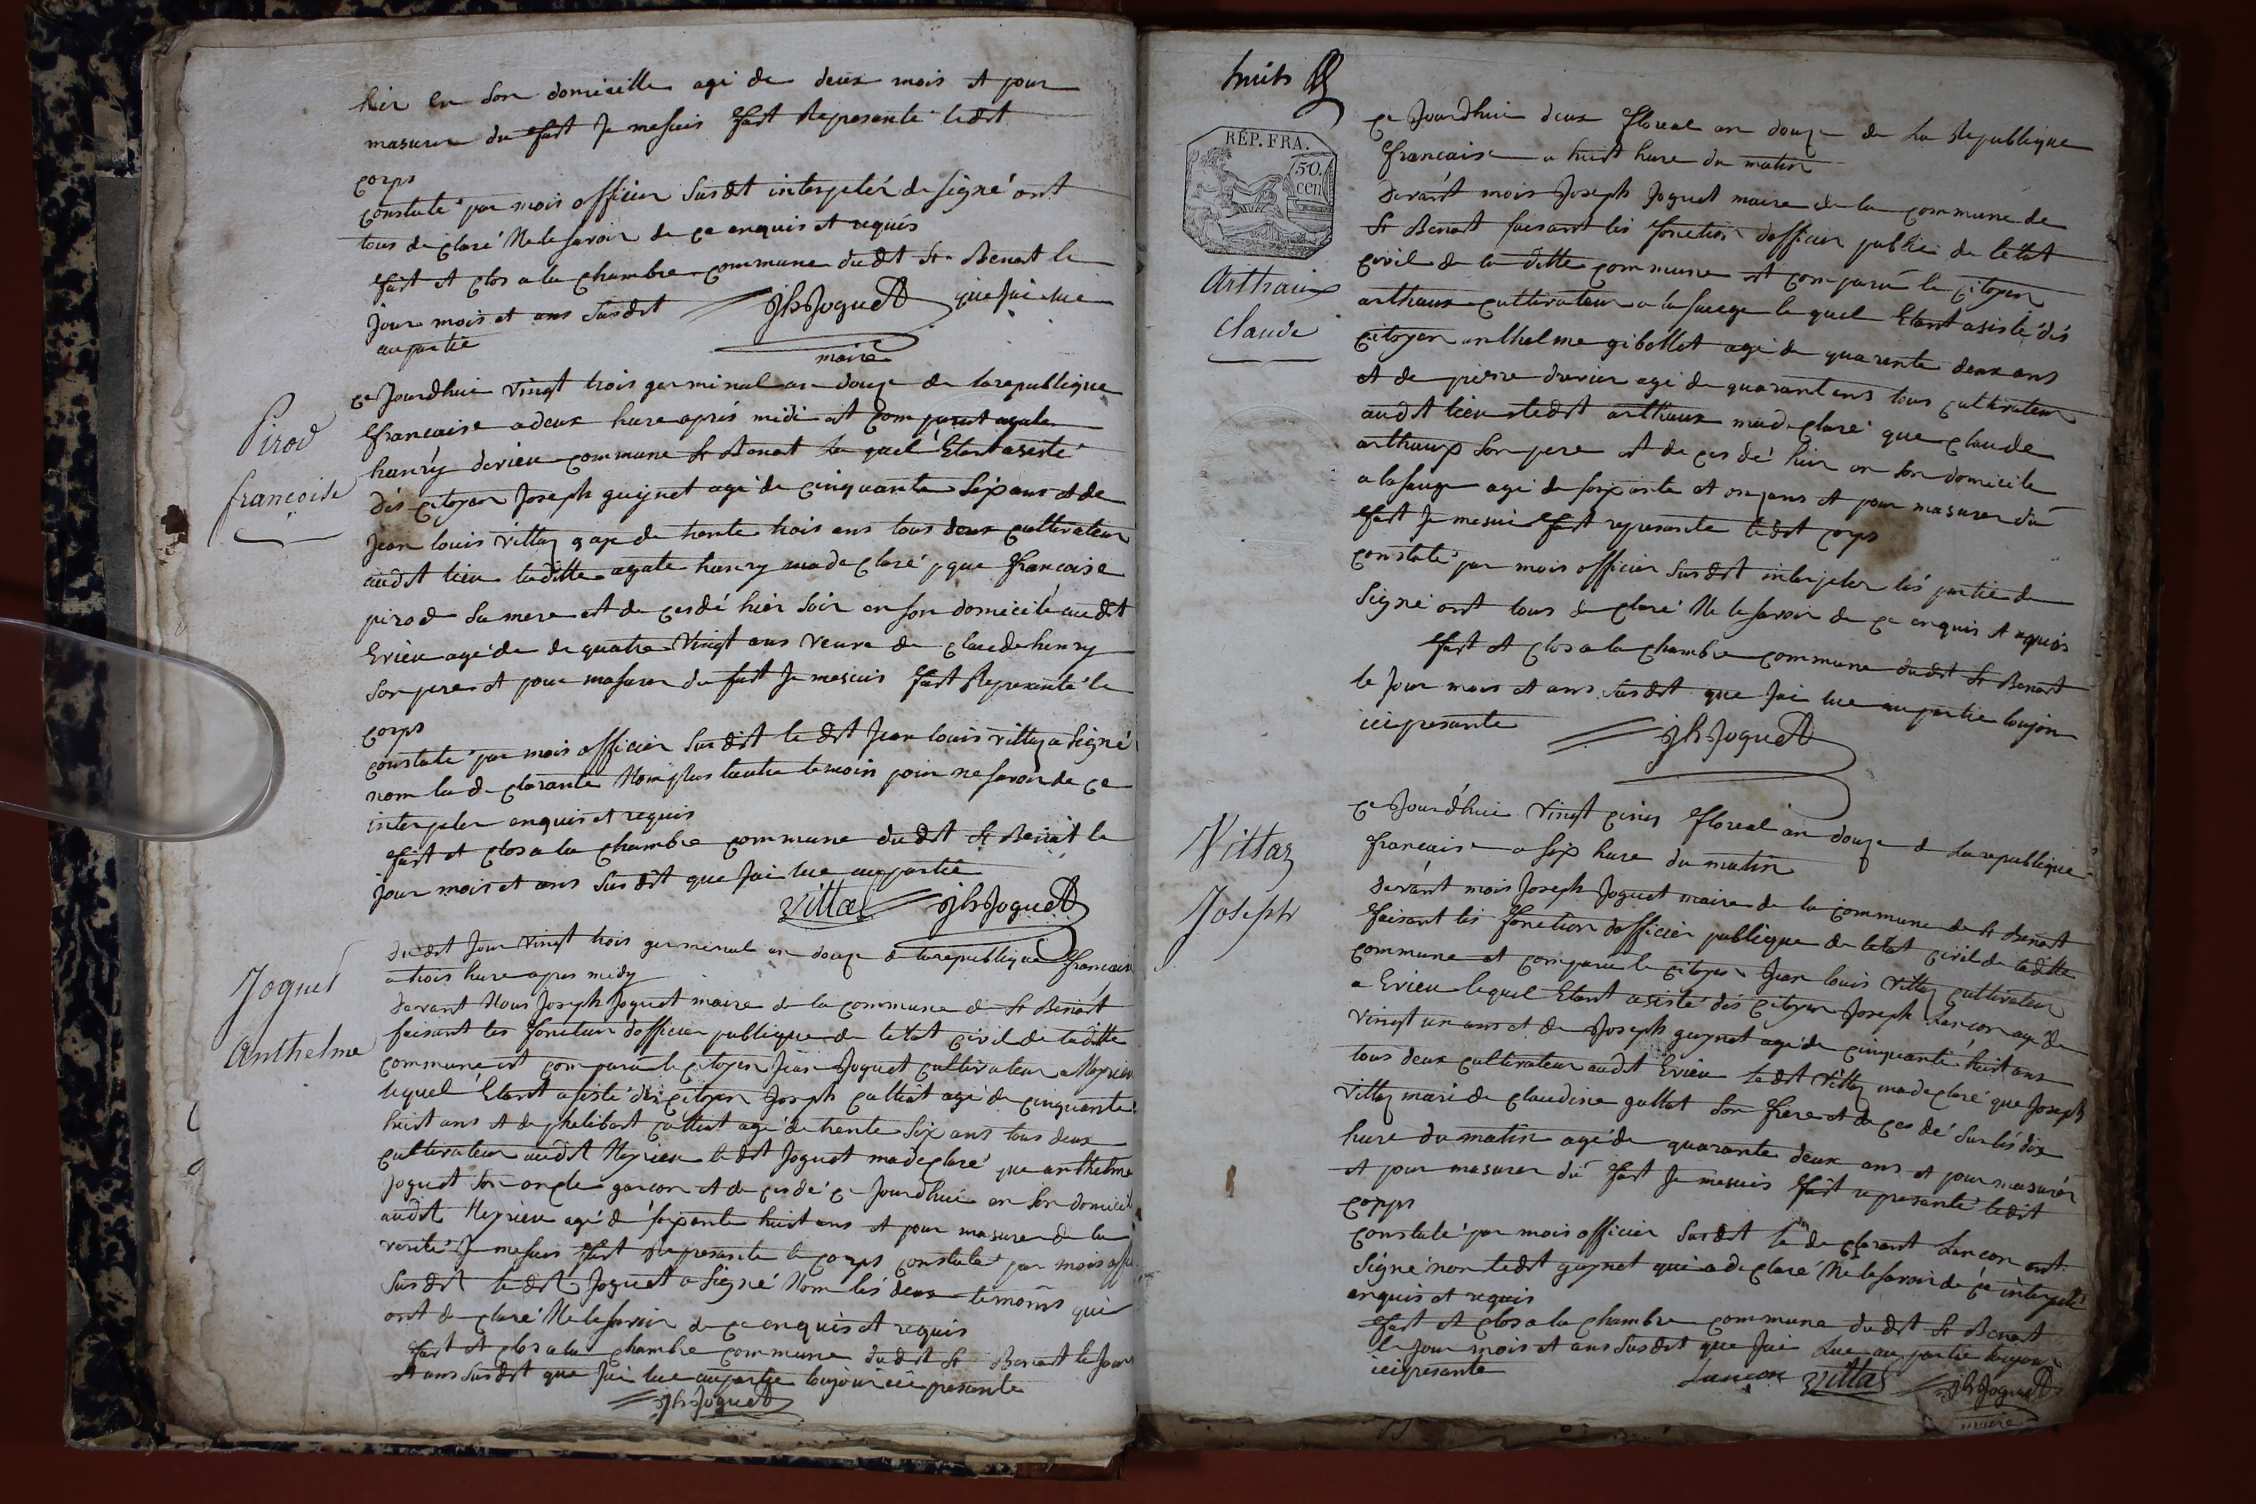 hier en son domicille agé de deux mois et pour
masurer du fait Je mesuis fait Representé ledit
corps
constaté par mois officier Susdit interpelér de signé ont
tous declaré Ne le savoir de ce enquis et requis
fait et clos a la chambre commune dudit St Benoit le
jour mois et ans Susdit JhJoguet que jai lue
au partie
maire
Pirod
francoise
ce Jourdhui vingt trois germinal an douze de la republique
francaise a deux hure aprés midi est comparut agate
hanry derieu commune St Benoit la quel Etant asisté
dés citoyen Joseph guynet agé de cinquante Six ans et de
Jean louis vittoz agé de trente trois ans tous deux cultivateur
audit lieu laditte agate hanry ma declaré que francoise
pirod Sa mere est decedé hier Soir en son domicile audit
Evieu agé de de quatre vingt ans veuve de claude henry
Son pere et pour masurer du fait Je mesuis fait Representé le
corps
constaté par mois officier Susdit le dit Jean louis vittoz a Signé
nom la declarante Nom plus lautre temoin pour ne savoir de ce
interpeler enquis et requis
fait et clos a la chambre commune dudit St Benoit le
jour mois et ans Susdit que jai lue au partie
Vittoz JhJoguet
Joguet
Anthelme
dudit Jour vingt trois germinal an douze de la republique francaise
a trois hure apres midy
devant Nous Joseph Joguet maire de la commune de St Benoit
faisant les fonction dofficier publique de letat civil de laditte
commune est comparu le citoyen Jean Joguet cultivateur a Neyrieu
lequel Etant asisté dés citoyen Joseph cattiat agé de cinquante
huit ans et de phelibert cattiat agé de trente Six ans tous deux
cultivateur audit Neyrieu le dit Joguet ma declaré que anthelme
Joguet Son oncle garcon et decedé ce Jourdhui en Son domicile
audit Neyrieu agé de soixante huit ans et pour masurer de la
verité Je mesuis fait Representé le corps constaté par mois
Susdit ledit Joguet a Signé Nom lés deux temoins qui
ont declaré Ne le savoir de ce enquis et requis
fait et clos a la chambre commune dudit St Benoit le Jour
et ans Susdit que jai lue au partie toujour ici presente
JhJoguet
huits
RÉP. FRA.
50.
cen
Arthaux
Claude
ce Jourdhui deux floreal an douze de La Republique
francaise a huit hure du matin
devant mois Joseph Joguet maire de la commune de
St Benoit faisant les fonction dofficier public de letat
civil de la ditte commune et comparu le citoyen
arthaux cultivateur a la sauge le quel Etant asisté dés
citoyen anthelme gibollet agé de quarante deux ans
et de pierre drevier agé de quarant ans tous cultivateur
audit lieu ledit arthaux ma declaré que claude
arthaux Son pere et decedé hier en Son domicile
a la sauge agé de soixante et onze ans et pour masurer du
fait Je mesui fait representé ledit corps
constaté par mois officier Susdit interpeler lés partie de
Signé ont tous declaré Ne le savoir de ce enquis et requis
fait et clos a la chambre commune dudit St Benoit
le Jour mois et ans Susdit que Jai lue au partie toujour
ici presente JhJoguet
Vittoz
Joseph
ce Jourdhui vingt cinq floreal an douze de La republique
francaise a Six hure du matin
devant mois Joseph Joguet maire de la commune de St Benoit
faisant lés fonction dofficier publique de letat civil de laditte
commune et comparu le citoyen Jean louis vittoz cultivateur
a Evieu lequel Etant asisté dés citoyen Joseph Lancon agé de
vingt un ans et de Joseph guynet agé de cinquante huit ans
tous deux cultivateur audit Evieu ledit vittoz ma declaré que Joseph
vittoz mari de claudine gallet Son frere et decedé Sur lés dix
hure du matin agé de quarante deux ans et pour masurér
et pour masurer du fait Je mesuis fait representé ledit
corps
constaté par mois officier Susdit le declarant Lancon ont
Signé non ledit guynet qui a declaré Ne le savoir de ce interpelé
enquis et requis
fait et clos a la chambre commune dudit St Benoit
le Jour mois et ans Susdit que Jai Lue au partie toujour
ici presente Lancon Vittoz JhJoguet
maire